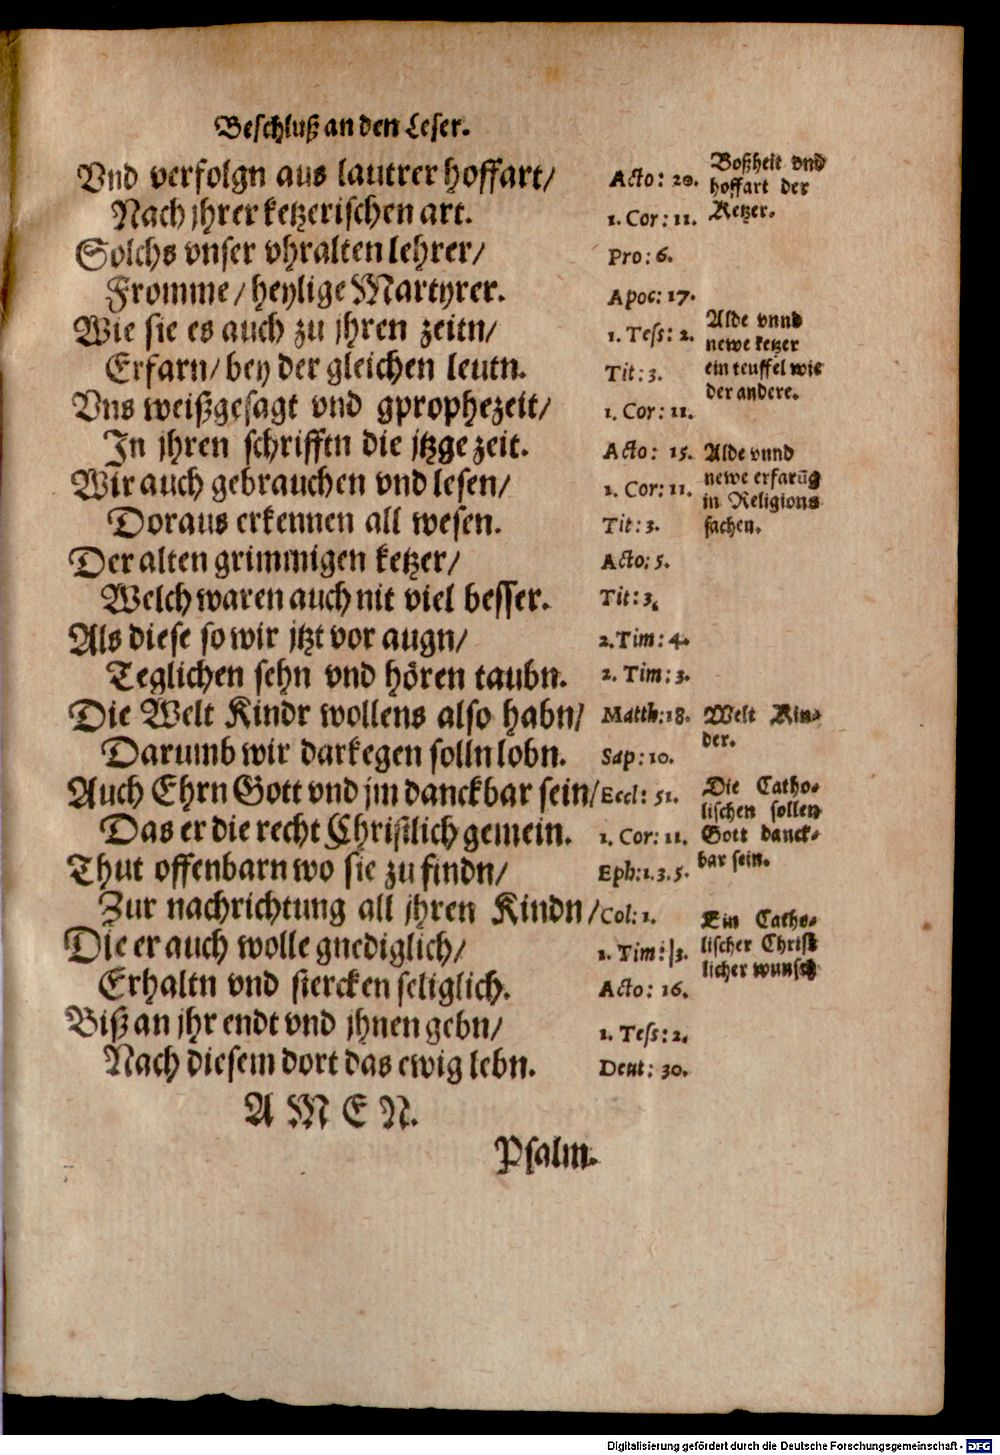 Beschluß an den Leser.
Vnd verfolgn aus lautrer hoffart/
Nach jhrer ketzerischen art.
Solchs vnser vhralten lehrer/
Fromme/ heylige Martyrer.
Wie sie es auch zu jhren zeitn/
Erfarn/ bey der gleichen leutn.
Vns weißgesagt vnd gprophezeit/
In jhren schrifftn die jtzge zeit.
Wir auch gebrauchen vnd lesen/
Doraus erkennen all wesen.
Der alten grimmigen ketzer/
Welch waren auch nit viel besser.
Als diese so wir jtzt vor augn/
Teglichen sehn vnd hören taubn.
Die Welt Kindr wollens also habn/
Darumb wir darkegen solln lobn.
Auch Ehrn Gott vnd jm danckbar sein/
Das er die recht Christlich gemein.
Thut offenbarn wo sie zu findn/
Zur nachrichtung all jhren Kindn/
Die er auch wolle gnediglich/
Erhaltn vnd stercken seliglich.
Biß an jhr endt vnd jhnen gebn/
Nach diesem dort das ewig lebn.
A M E N.
Psalm.
Acto: 20.
1. Cor: 11.
Pro: 6.
Apoc: 17.
1. Tess: 2.
Tit: 3.
1. Cor: 11.
Acto: 15.
1. Cor: 11.
Tit: 3.
Acto: 5.
Tit: 3.
2. Tim: 4.
2. Tim: 3.
Matth: 18.
Sap: 10.
Eccl: 51.
1. Cor: 11.
Eph: 1. 3. 5.
Col: 1.
1. Tim: 3.
Acto: 16.
1. Tess: 2.
Deut: 30.
Boßheit vnd
hoffart der
Ketzer.
Alde vnnd
newe ketzer
ein teuffel wie
der andere.
Alde vnnd
newe erfarūg
in Religions
sachen.
Welt Kin-
der.
Die Catho-
lischen sollen
Gott danck-
bar sein.
Ein Catho-
lischer Christ
licher wunsch
Digitalisierung gefördert durch die Deutsche Forschungsgemeinschaft - DFG